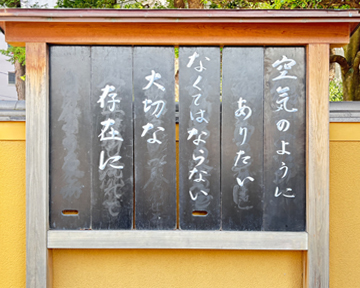 空気のように
ありたい
なくてはならない
大切な
存在に